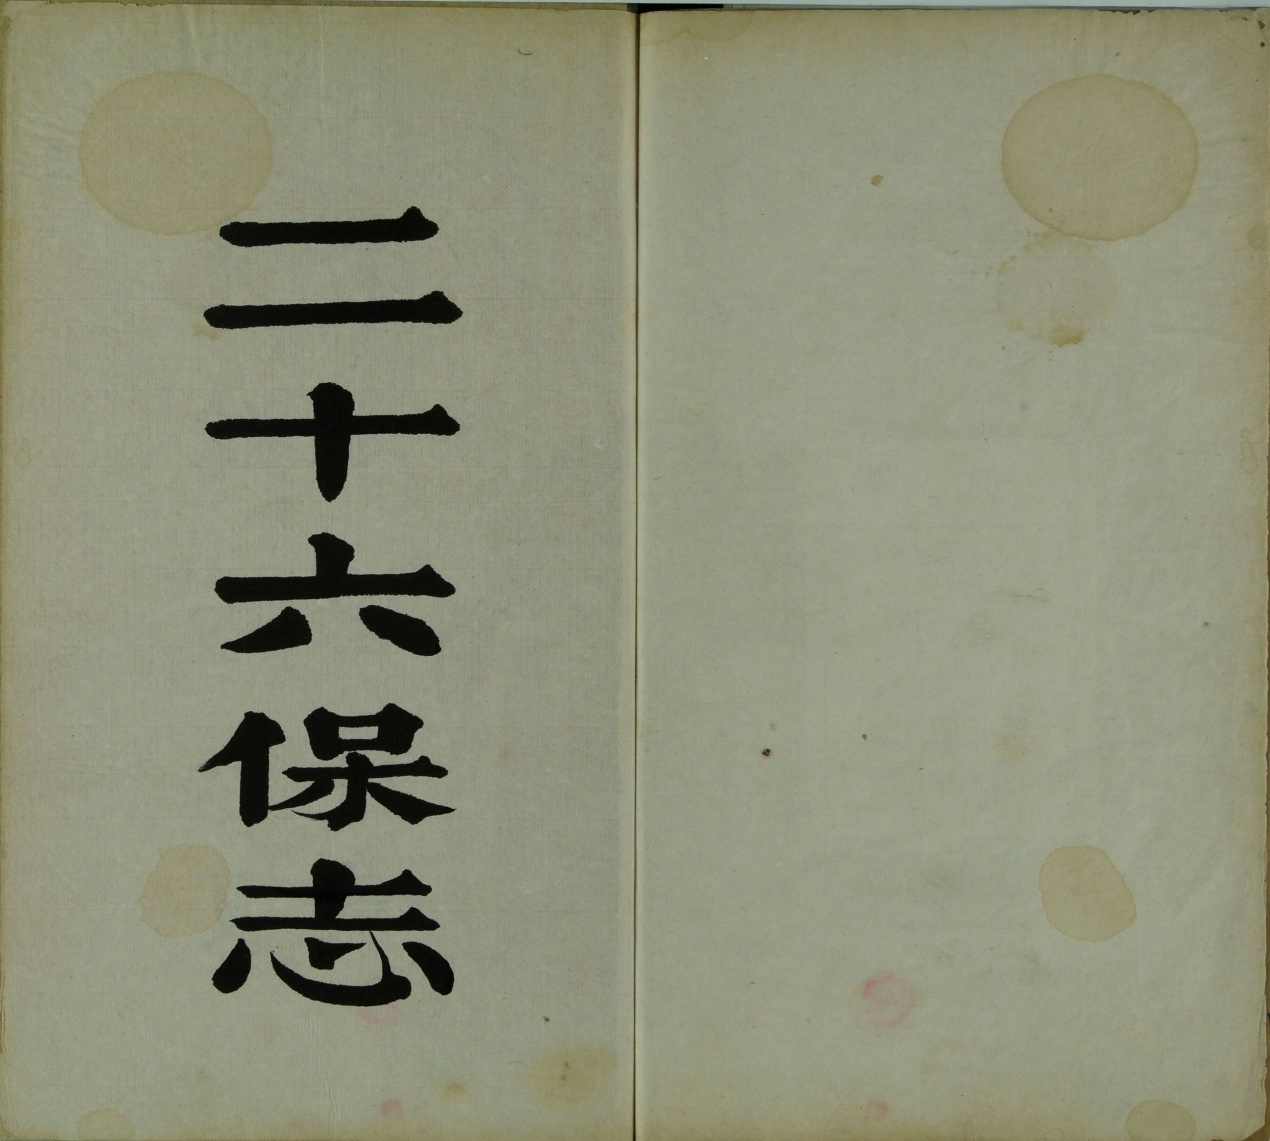 二十六保志